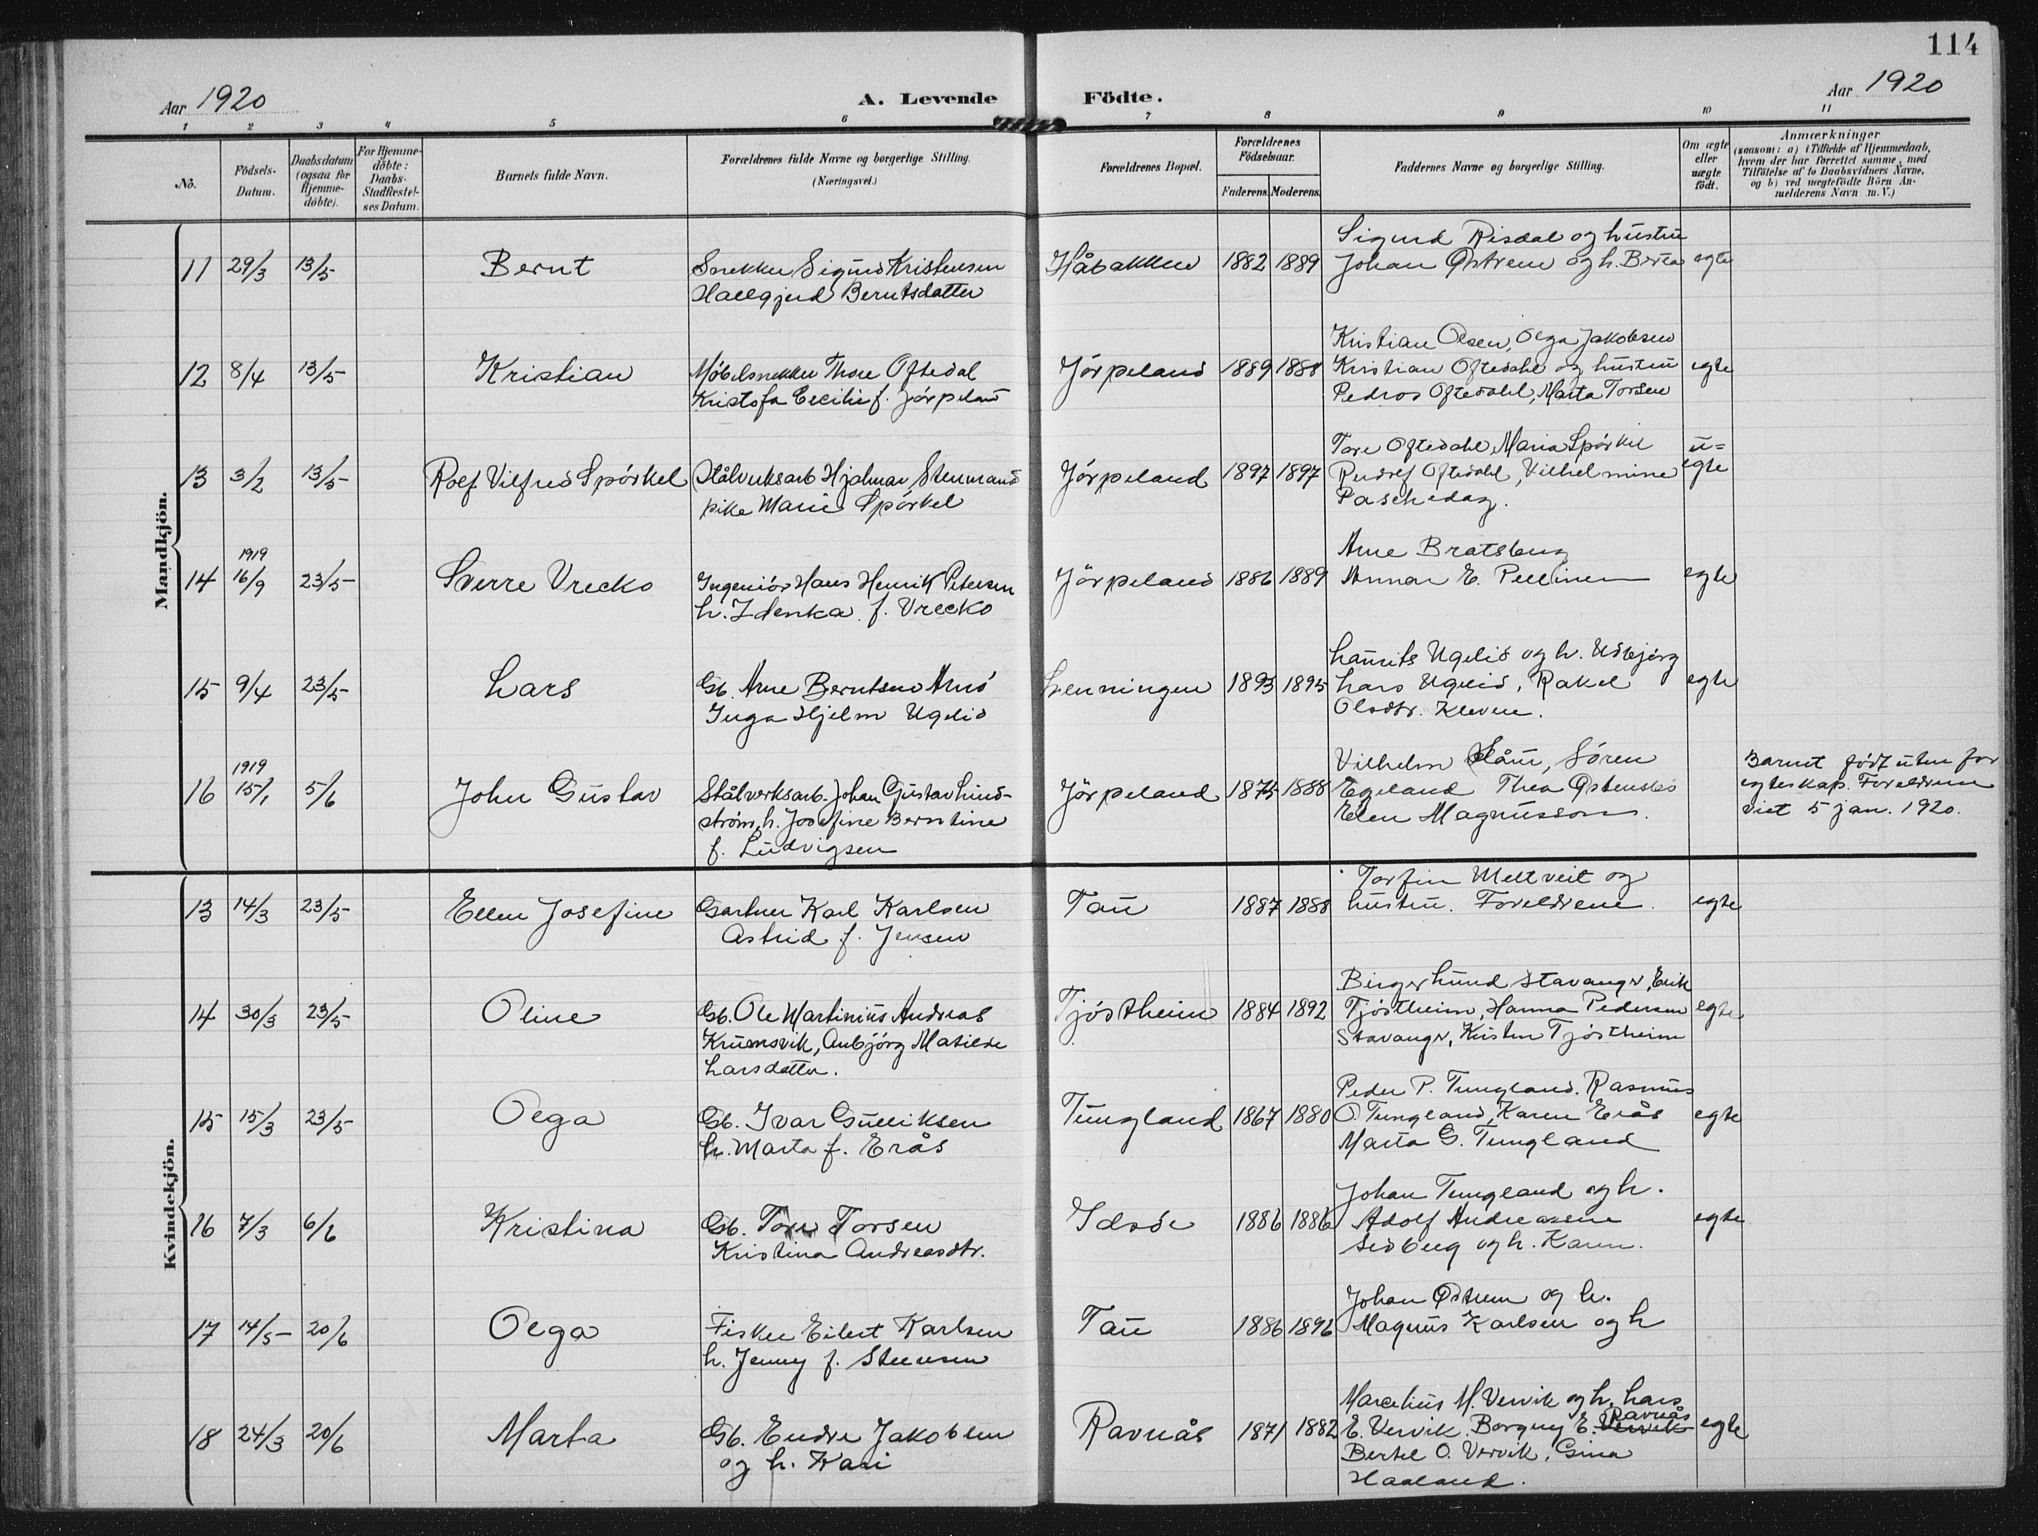 114
Aar 1920
A. Levende Födte.
Aar 1920
1 2 3 4 5 6 7 8 9 10 11
No.
Födsels-Datum.
Daabsdatum (ogsaa for Hjemme-döbte).
For Hjemme-döbte: Daabs-Stadfæstel-ses Datum.
Barnets fulde Navn.
Forældrenes fulde Navne og borgerlige Stilling.
(Næringsvei.)
Forældrenes Bopæl.
Forældrenes Födselsaar.
Faderens. Moderens.
Faddernes Navne og borgerlige Stilling.
Om ægte eller uægte födt.
Anmærkninger
(saasom: a) i Tilfælde af Hjemmedaab,
hvem der har forrettet samme, med
Tilföielse af to Daabsvidners Navne,
og b) ved uægtefödte Börn An-
melderens Navn m. V.)
Mandkjön.
11 29/3 13/5 Bernt
Snekker Sigurd Kristensen
Hallgjerd Berntsdatter
Håbakken 1882 1889
Sigurd Risdal og hustru
Johan Østrem og h. Berta
egte
12 8/4 13/5 Kristian
Möbelsnekker Thore Oftedal
Kristofa Cecilie f. Jörpeland
Jörpeland 1889 1888
Kristian Olsen, Olga Jakobsen
Kristian Oftedahl og hustru
Pedros Oftedahl, Marta Torsen
egte
13 3/2 13/5 Rolf Vilfred Spörkel
Stålverksarb Hjalmar Stenmand
pike Marie Spörkel
Jörpeland 1897 1897
Tore Oftedahl, Maria Spörkel
Rudolf Oftedahl, Vilhelmine
Paschedag.
u=
egte
14 1919 16/9 23/5 Sverre Vrecko
Ingeniör Hans Henrik Petersen
h. Zdenka f. Vrecko
Jörpeland 1886 1889
Arne Bratsberg
Annar E. Pellinen
egte
15 9/4 23/5 Lars
Gb. Arne Berntsen Amö
Inga Hjelm Ugelid
Lenningen 1893 1895
Laurits Ugelid og h. Udbjörg
Lars Ugelid, Rakel
Olsdtr. Kleven.
egte
16 1919 15/1 5/6 John Gustav
Stålverksarb. Johan Gustav Lind-
ström, h. Josefine Berntine
f. Ludvigsen
Jörpeland 1875 1888
Vilhelm Slåtu, Sören
Egeland Thea Østenskö
Elen Magnusson.
Barnet födt uten for
egteskap. Foreldrene
viet 5 jan. 1920.
Kvindekjön.
13 14/3 23/5 Ellen Josefine
Gartner Karl Karlsen
Astrid f. Jensen
Tau 1887 1888
Torfin Meltveit og
hustru. Foreldrene.
egte
14 30/3 23/5 Oline
Gb. Ole Martinius Andreas
Krumsvik, Anbjörg Matilde
Larsdatter.
Tjöstheim 1884 1892
Birger Lund Stavanger, Erik
Tjöstheim, Hanna Pedersen
Stavanger, Kristen Tjöstheim
egte
15 15/3 23/5 Olga
Gb. Ivar Gulliksen
h. Marta f. Erås
Tungland 1867 1880
Peder P. Tungland. Rasmus
O. Tungland, Karen Erås
Marta G. Tungland
egte
16 7/3 6/6 Kristina
Gb. Tore Torsen
Kristina Andreasdtr.
Idsöe 1886 1886
Johan Tungland og h.
Adolf Andreasen
Sedberg og h. Karen.
egte
17 14/5 20/6 Olga
Fisker Eilert Karlsen
h. Jenny f. Steensen
Tau 1886 1896
Johan Østrem og h.
Magnus Karlsen og h
18 24/3 20/6 Marta
Gb. Endre Jakobsen
og h. Kari
Ravnås 1871 1882
Marselius M. Vervik og h. Lars
E. Vervik. Borgny E. Vervik Ravnås
Bertel O. Vervik, Gina
Haaland.
egte